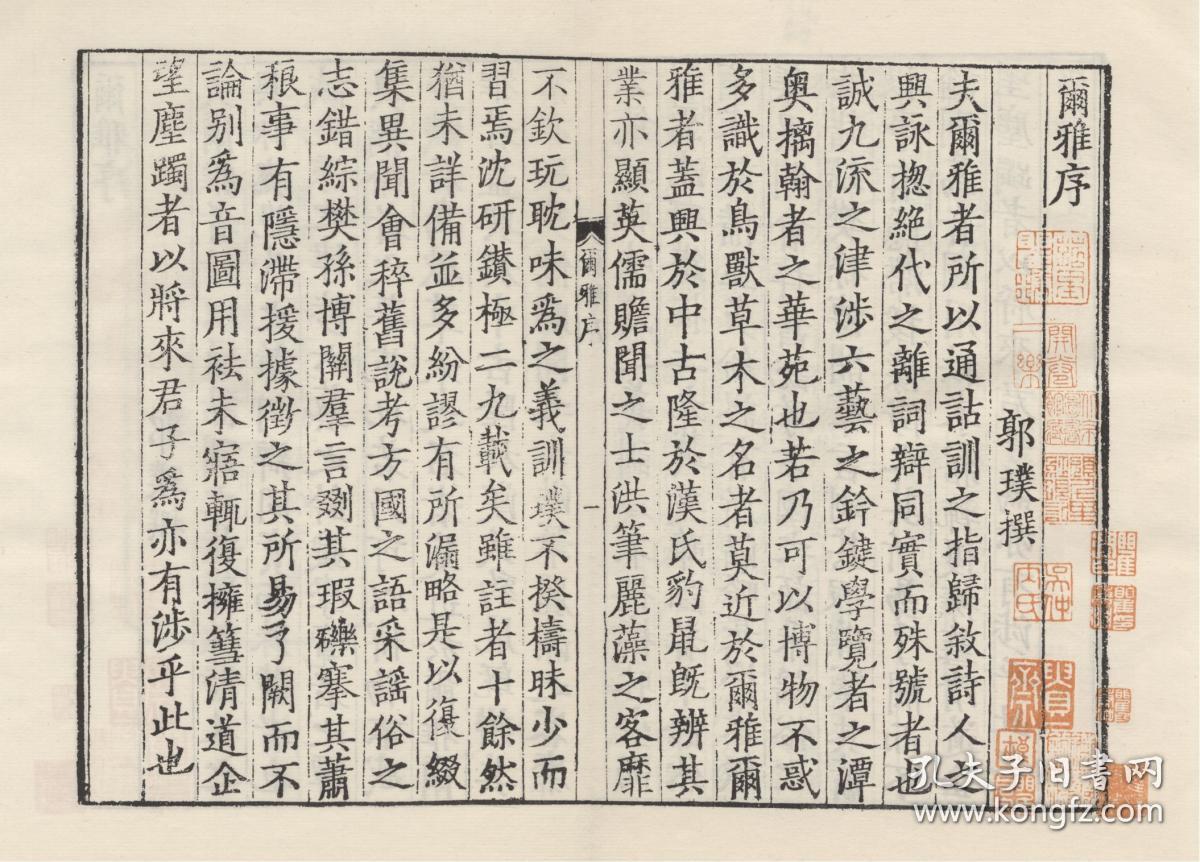 爾雅序
郭璞撰
夫爾雅者所以通詁訓之指歸敘詩人之
興詠揔絶代之離詞辯同實而殊號者也
誠九流之津涉六藝之鈐鍵學覽者之潭
奥摛翰者之華苑也若乃可以博物不惑
多識於鳥獸草木之名者莫近於爾雅爾
雅者蓋興於中古隆於漢氏豹鼠既辨其
業亦顯英儒贍聞之士洪筆麗藻之客靡
爾雅序
一
不欽玩耽味爲之義訓璞不揆檮昧少而
習焉沈研鑚極二九載矣雖註者十餘然
猶未詳備並多紛謬有所漏略是以復綴
集異聞會稡舊說考方國之語采謠俗之
志錯綜樊孫博關羣言剟其瑕礫搴其蕭
稂事有隱滯援據徵之其所易了闕而不
論别爲音圖用袪未寤輒復擁篲清道企
望塵躅者以將來君子爲亦有涉乎此也
孔夫子旧書网
www.kongfz.com